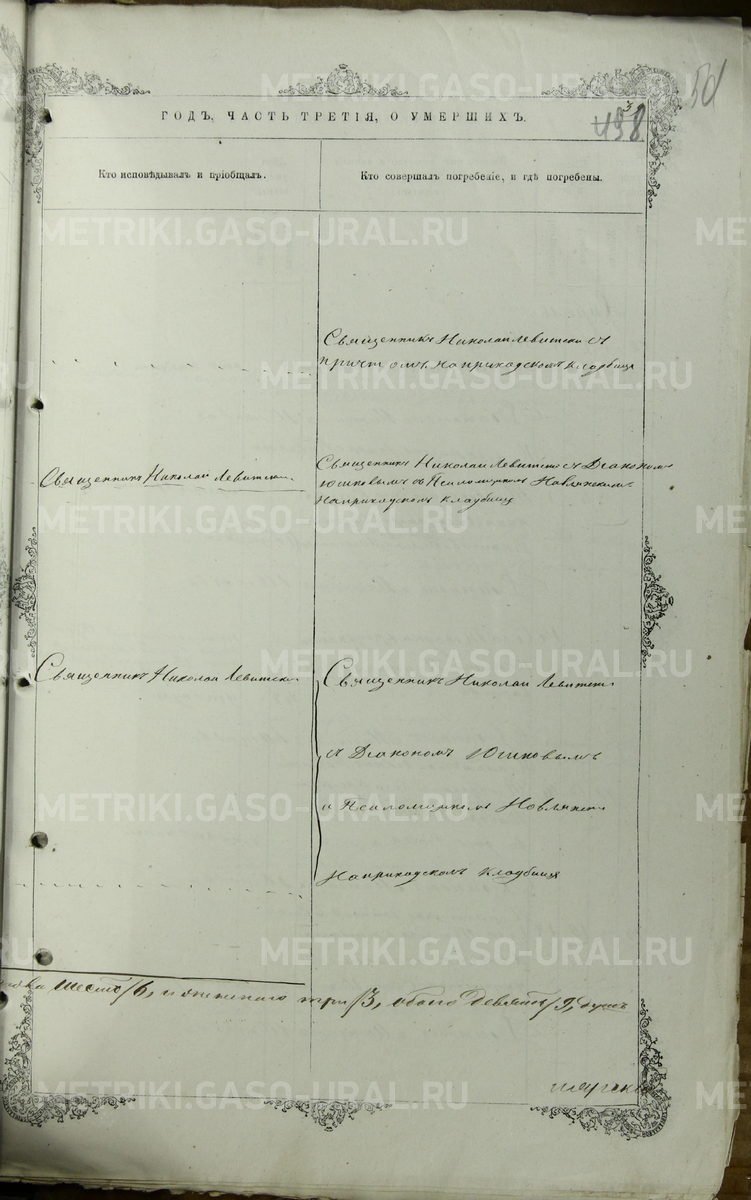 METRIKI.GASO-URAL.RU
50
498
ГОДЪ, ЧАСТЬ ТРЕТІЯ, О УМЕРШИХЪ.
Кто исповѣдывалъ и пріобщалъ.
Кто совершалъ погребеніе, и гдѣ погребены.
Священникъ Николай Левитски съ
причтомъ на приходскомъ кладбищѣ
Священникъ Николай Левитски
Священникъ Николай Левитски съ Діакономъ
Юшковымъ Псаломщикомъ
На приходскомъ кладбищѣ
Священникъ Николай Левитски
Священникъ Николай Левитски
съ Діакономъ Юшковымъ
и Псаломщикомъ
На приходскомъ кладбищѣ
шесть /6, и женскаго три /3, обоего девять /9, душъ